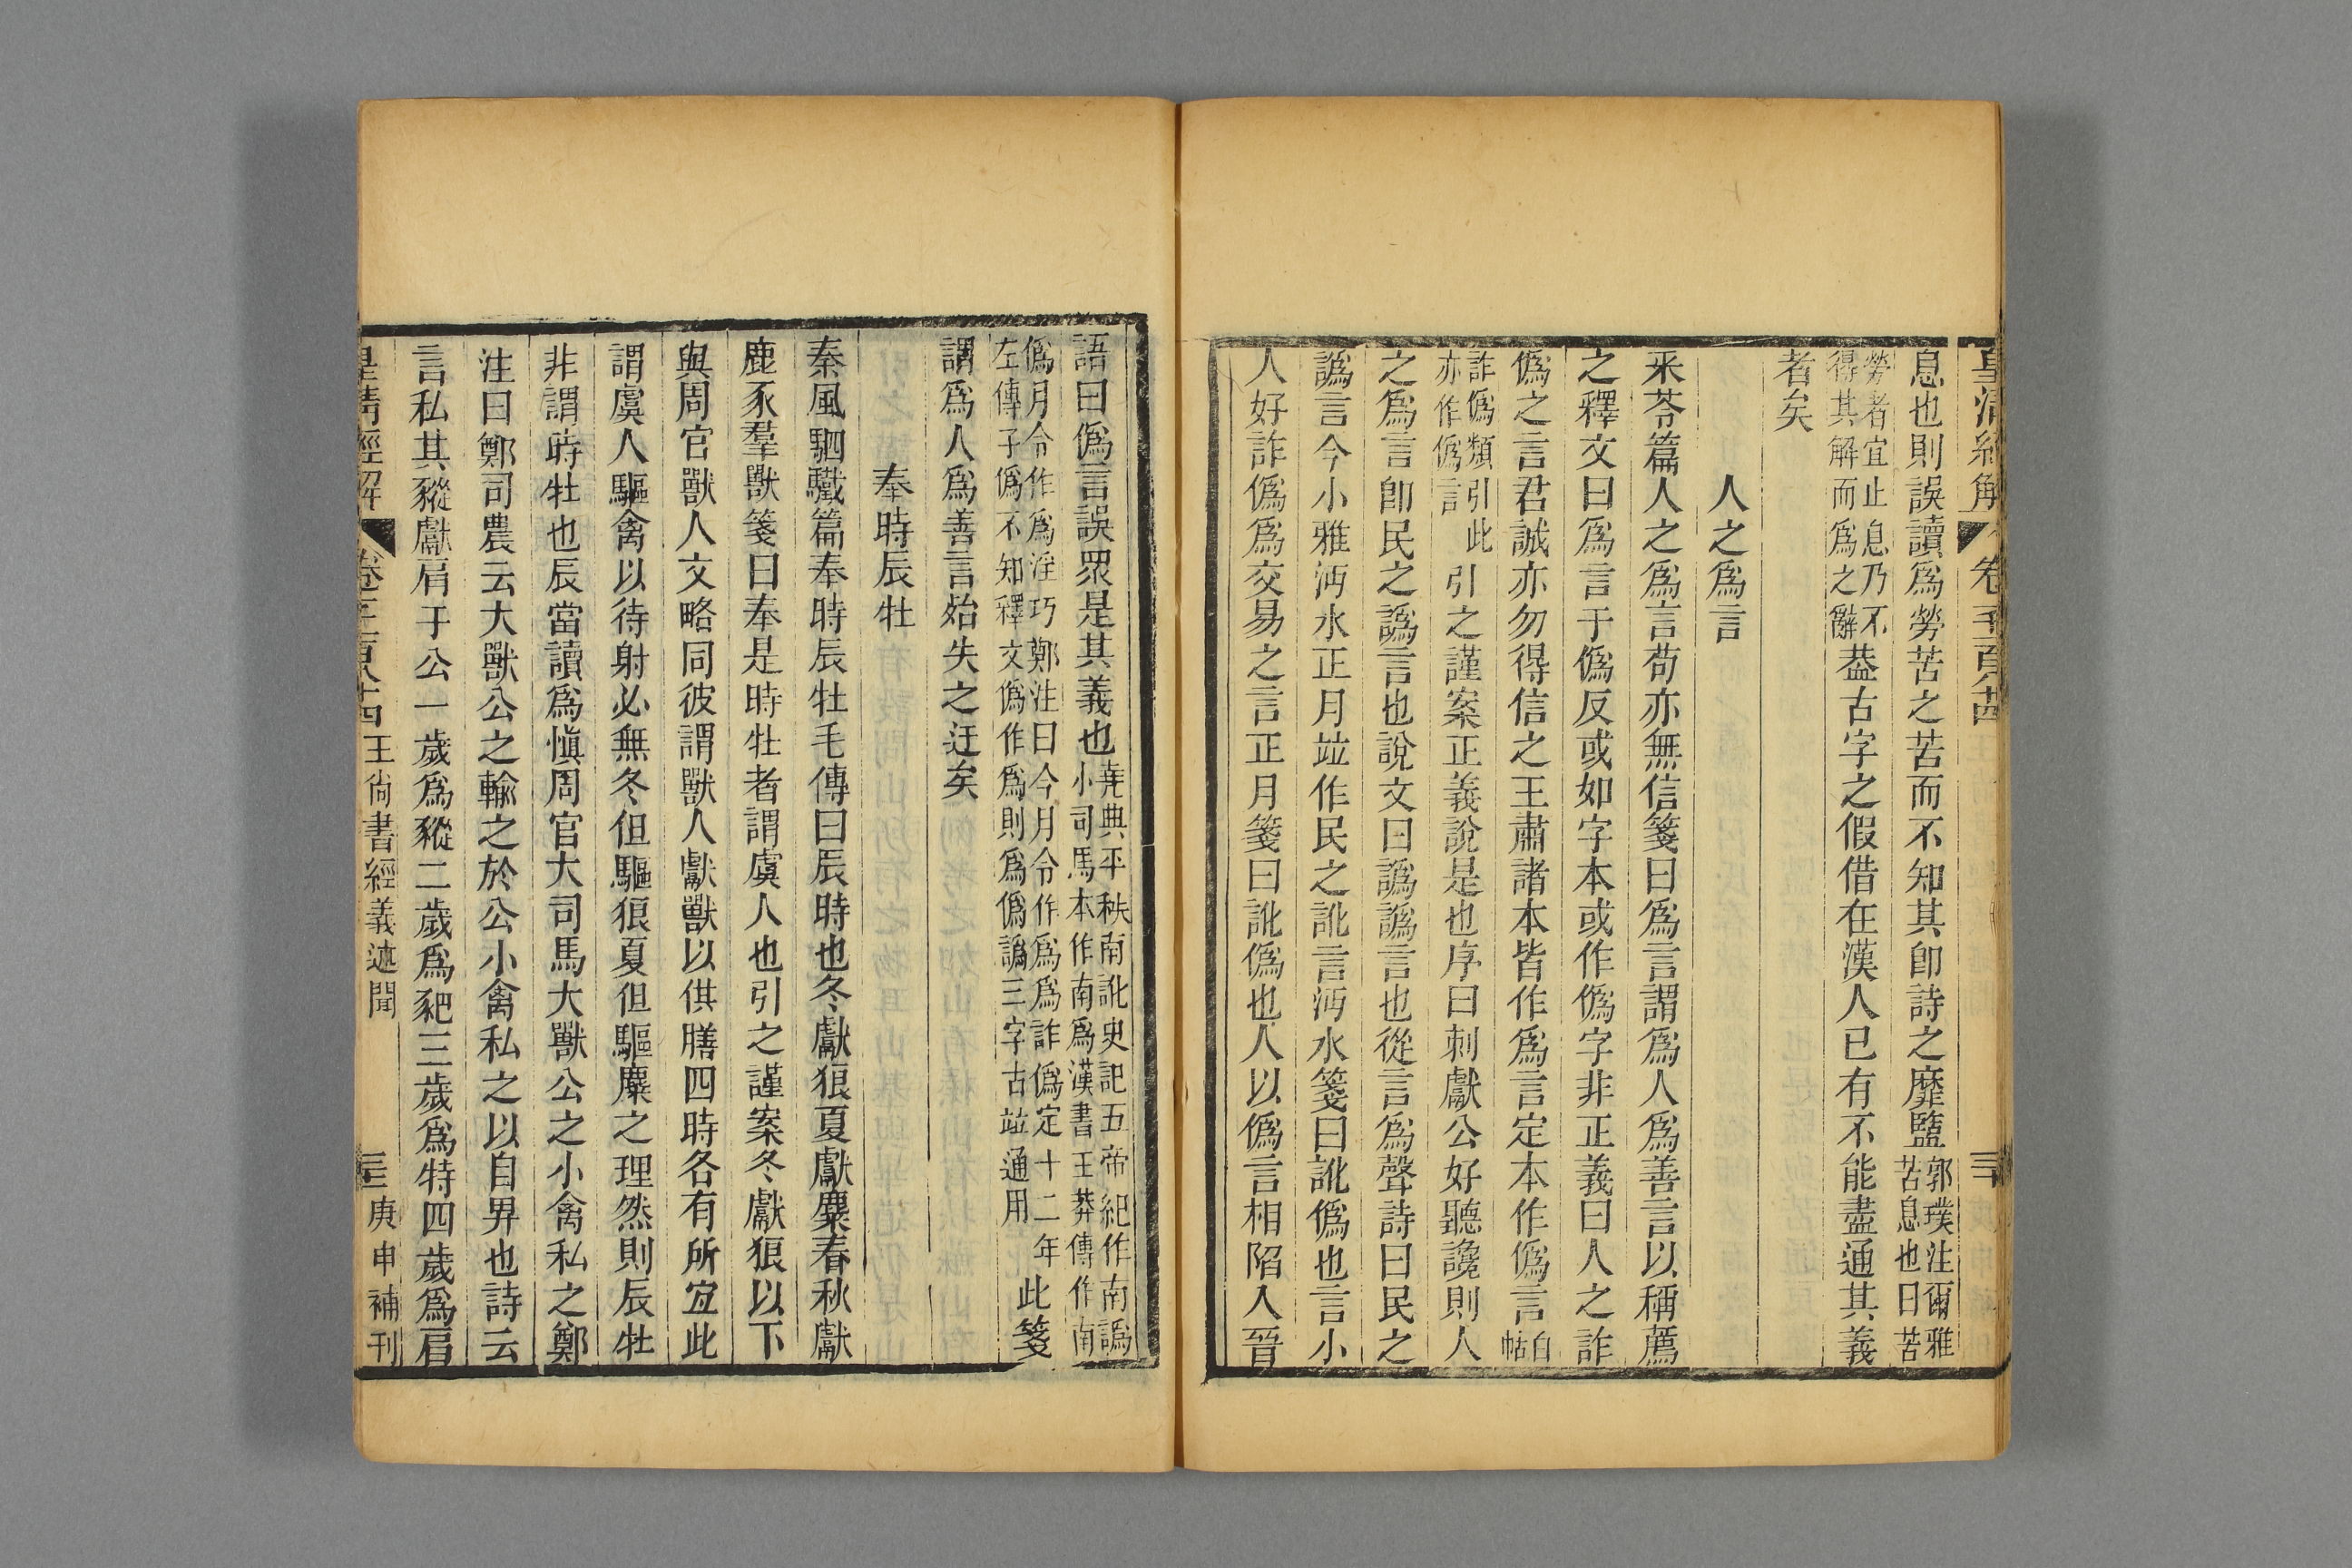 皇清經解
卷一千一百八十四
三十
息也則誤讀爲勞苦之苦而不知其卽詩之靡盬郭璞注爾雅
苦息也曰苦
勞者宜止息乃不
得其解而爲之辭葢古字之假借在漢人已有不能盡通其義
者矣
人之爲言
采苓篇人之爲言苟亦無信箋曰爲言謂爲人爲善言以稱薦
之釋文曰爲言于僞反或如字本或作僞字非正義曰人之詐
僞之言君誠亦勿得信之王肅諸本皆作爲言定本作僞言白
帖
詐僞類引此
亦作僞言引之謹案正義說是也序曰刺獻公好聽讒則人
之爲言卽民之譌言也說文曰譌譌言也從言爲聲詩曰民之
譌言今小雅沔水正月竝作民之訛言沔水箋曰訛僞也言小
人好詐僞爲交易之言正月箋曰訛僞也人以僞言相陷入晉
語曰僞言誤眾是其義也堯典平秩南訛史記五帝紀作南譌
小司馬本作南爲漢書王莽傳作南
僞月令作爲淫巧鄭注曰今月令作爲爲詐僞定十二年
左傳子僞不知釋文僞作爲則爲僞譌三字古竝通用此箋
謂爲人爲善言始失之迂矣
奉時辰牡
秦風駟驖篇奉時辰牡毛傳曰辰時也冬獻狼夏獻麋春秋獻
鹿豕羣獸箋曰奉是時牡者謂虞人也引之謹案冬獻狼以下
與周官獸人文略同彼謂獸人獻獸以供膳四時各有所宜此
謂虞人驅禽以待射必無冬但驅狼夏但驅麋之理然則辰牡
非謂時牡也辰當讀爲愼周官大司馬大獸公之小禽私之鄭
注曰鄭司農云大獸公之輸之於公小禽私之以自畀也詩云
言私其豵獻肩于公一歲爲豵二歲爲豝三歲爲特四歲爲肩
皇清經解
卷一千一百八十四
王尚書經義述聞
三十
庚申補刊